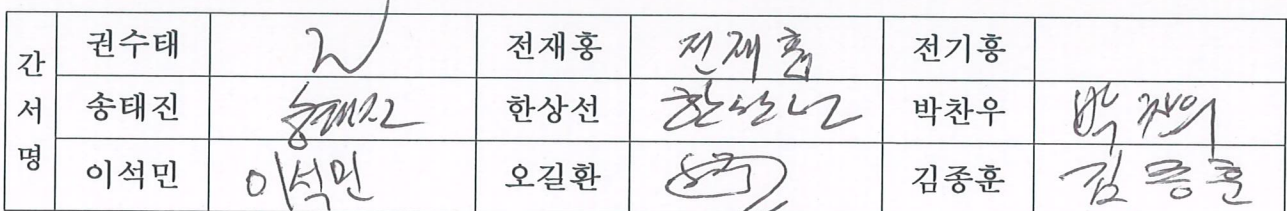 간서명
권수태 전재홍 전재홍 전기흥
송태진 송태진 한상선 한상선 박찬우 박찬우
이석민 이석민 오길환 김종훈 김종훈